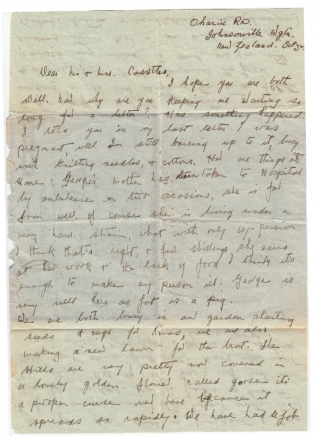 Ohariu RD.
Johnsonville Wgtn.
New Zealand. Oct 3
Dear Mr & Mrs. Cassttes,
I hope you are both
well. how why are you keeping me waiting so
long for a letter? Has something happened.
I told you in my last letter I was
pregnant well Im still having up to it, busy
with knitting needles, & cottons. How are things at
Home; Georges mother has been taken to Hospital
by ambulance on two occasions, she is far
from well, of course she is living under a
very hard strain, what with only 29/- pension
I think thats right, & few shillings she earns
at her work & the lack of food I think its
enough to make any person ill. George is
very well & as fat as a pig.
We are both busy in our garden planting
seeds & veges for Xmas, we are also
making a new lawn for the front. The
Hills are very pretty now covered in
a lovely golden flower called gorse its
a proper curse over here because it
spreads so rapidly. We have had to job